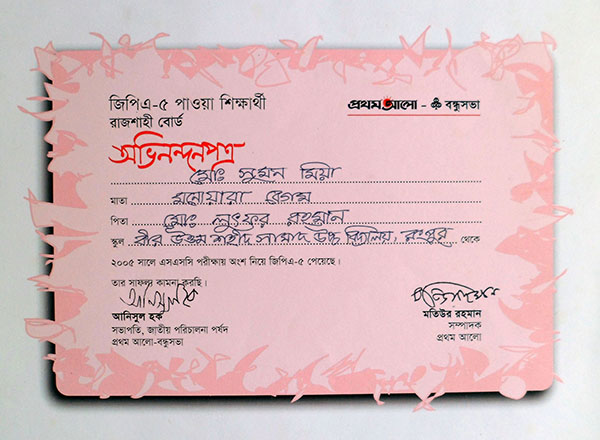 জিপিএ-৫ পাওয়া শিক্ষার্থী
রাজশাহী বোর্ড
প্রথম আলো - বন্ধুসভা
অভিনন্দনপত্র
মোঃ সুমন মিয়া
মাতা মনোয়ারা বেগম
পিতা মোঃ লুৎফর রহমান
স্কুল বীর উত্তম শহীদ সামাদ উচ্চ বিদ্যালয়, রংপুর থেকে
২০০৫ সালে এসএসসি পরীক্ষায় অংশ নিয়ে জিপিএ-৫ পেয়েছে।
তার সাফল্য কামনা করছি।
আনিসুল হক
আনিসুল হক
সভাপতি, জাতীয় পরিচালনা পর্ষদ
প্রথম আলো-বন্ধুসভা
মতিউর রহমান
সম্পাদক
প্রথম আলো